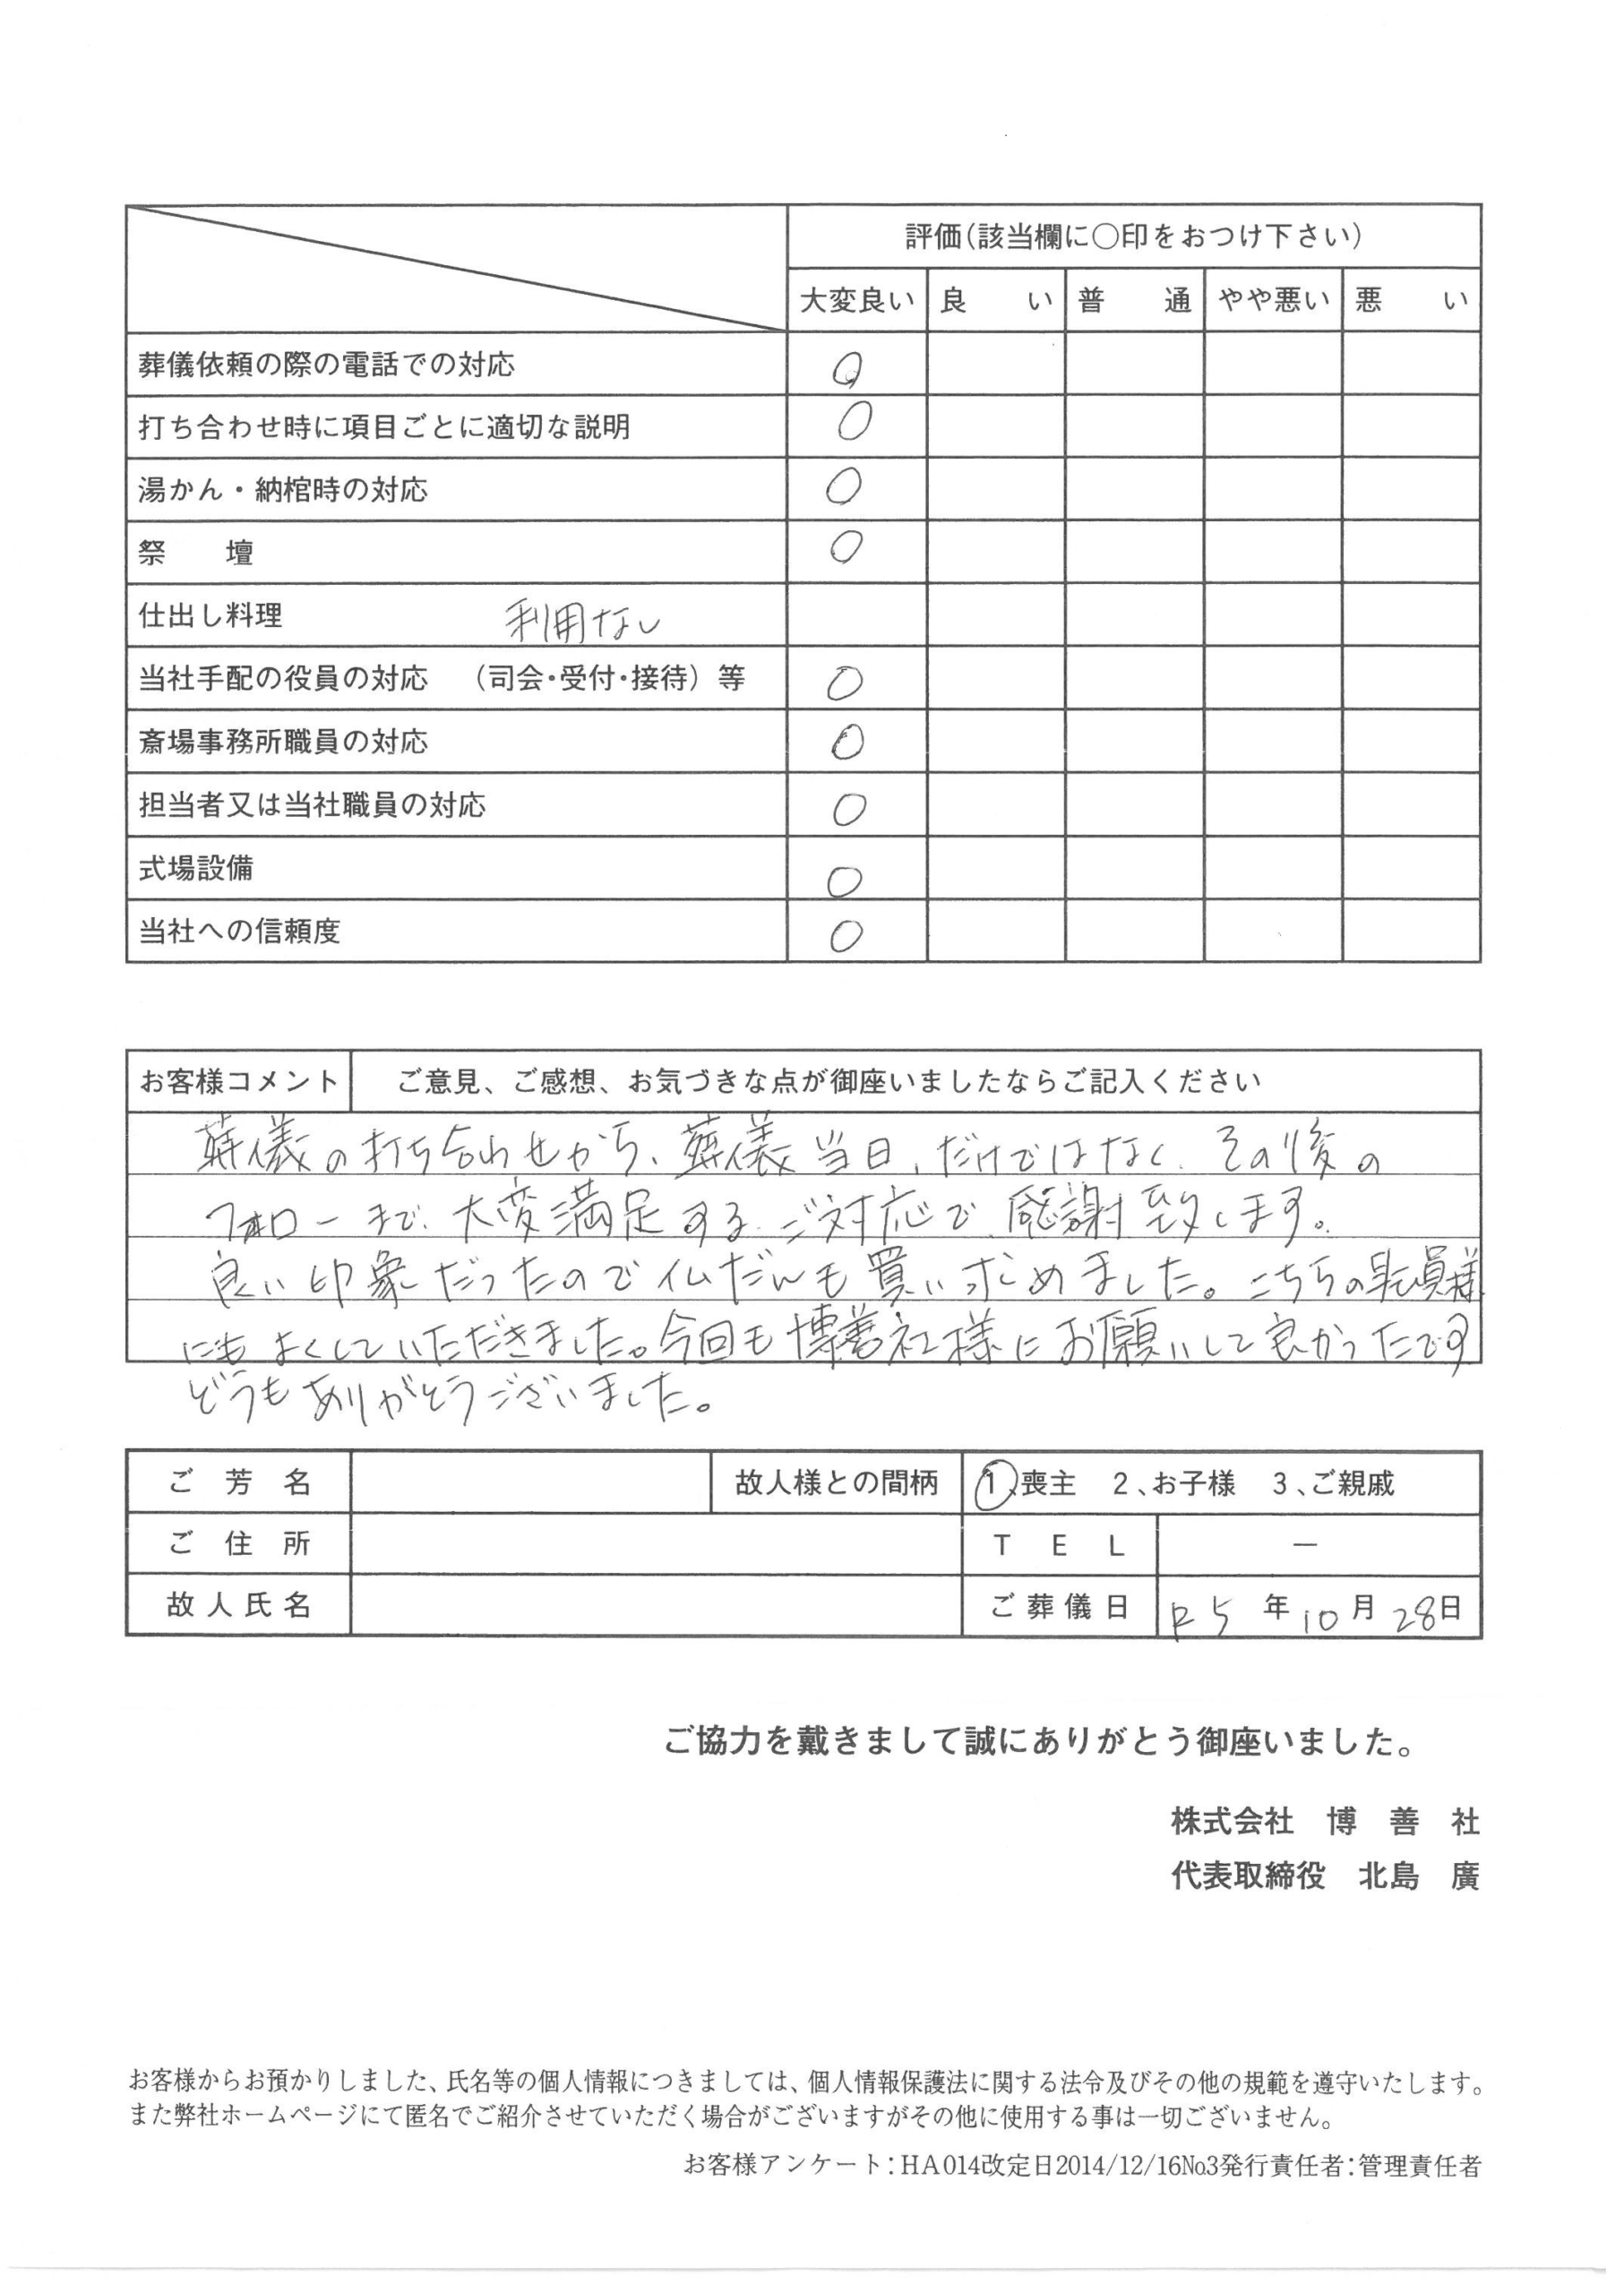 評価(該当欄に〇印をおつけ下さい)
大変良い 良い 普通 やや悪い 悪い
葬儀依頼の際の電話での対応 ○
打ち合わせ時に項目ごとに適切な説明 ○
湯かん・納棺時の対応 ○
祭壇 ○
仕出し料理 利用なし
当社手配の役員の対応 (司会・受付・接待)等 ○
斎場事務所職員の対応 ○
担当者又は当社職員の対応 ○
式場設備 ○
当社への信頼度 ○
お客様コメント ご意見、ご感想、お気づきな点が御座いましたならご記入ください
葬儀の打ち合わせから、葬儀当日、だけではなく、その後の
フォローまで、大変満足するご対応で、感謝致します。
良い印象だったので仏だんも買い求めました。こちらの職員様
にもよくしていただきました。今回も博善社様にお願いして良かったです
どうもありがとうございました。
ご芳名 故人様との間柄 1、喪主 2、お子様 3、ご親戚
ご住所 TEL ー
故人氏名 ご葬儀日 R5年10月28日
ご協力を戴きまして誠にありがとう御座いました。
株式会社 博善社
代表取締役 北島 廣
お客様からお預かりしました、氏名等の個人情報につきましては、個人情報保護法に関する法令及びその他の規範を遵守いたします。
また弊社ホームページにて匿名でご紹介させていただく場合がございますがその他に使用する事は一切ございません。
お客様アンケート：HA014改定日2014/12/16№3発行責任者：管理責任者